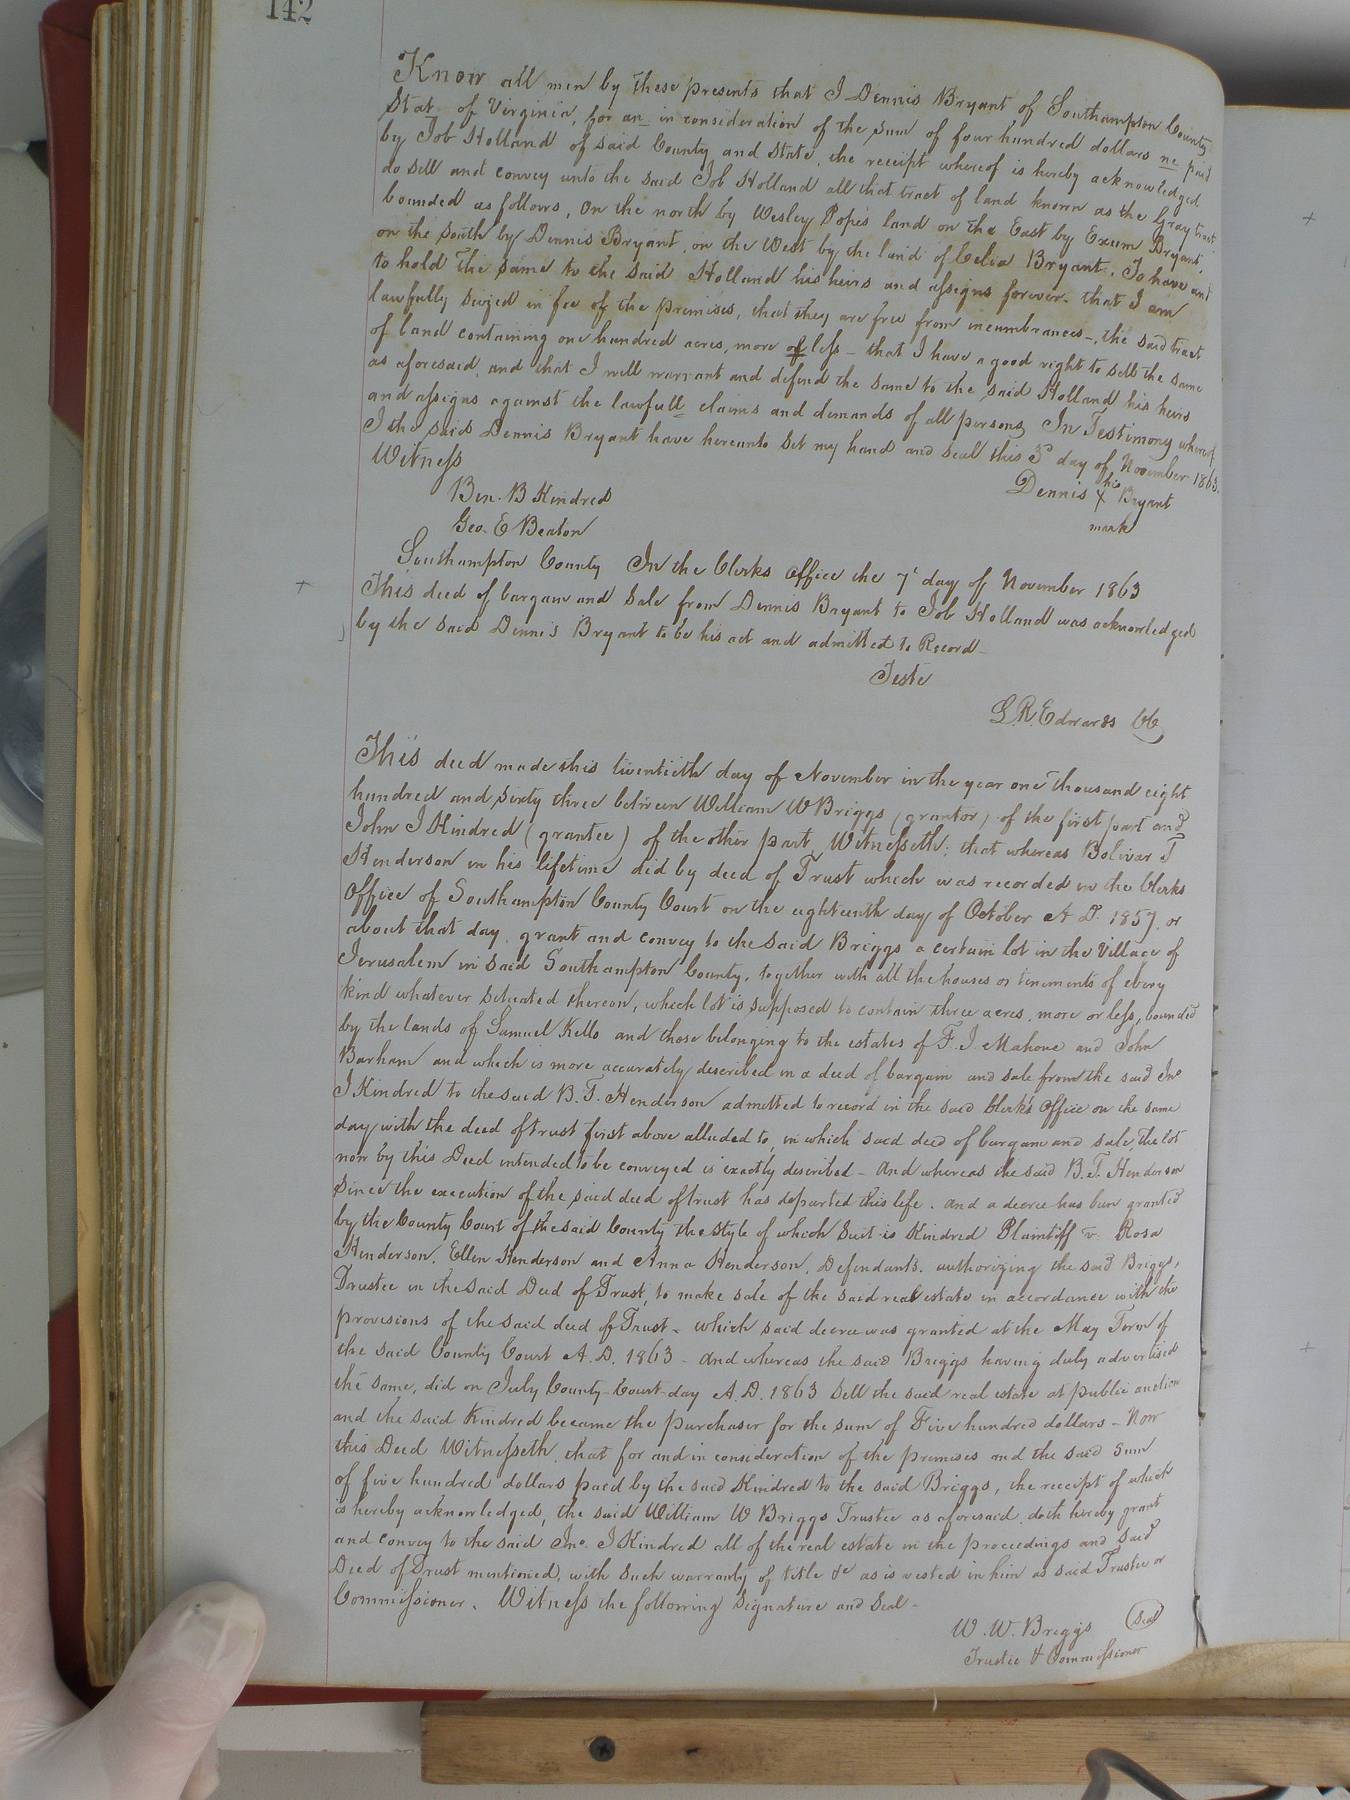 142
Know all men by these presents that I Dennis Bryant of Southampton County
State of Virginia, for an in consideration of the sum of four hundred dollars me paid
by Job Holland of said County and State, the receipt whereof is hereby acknowledged
do sell and convey unto the said Job Holland all that tract of land known as the Gray tract
bounded as follows, On the north by Wesley Popes land on the East by Exum Bryant,
on the South by Dennis Bryant, on the West by the land of Celia Bryant. To have and
to hold the same to the said Holland his heirs and assigns forever. that I am
lawfully seized in fee of the premises, that they are free from incumbrances, the said tract
of land containing one hundred acres, more or less - that I have a good right to sell the same
as aforesaid, and that I will warrant and defend the same to the said Holland his heirs
and assigns against the lawfull claims and demands of all persons In Testimony whereof
I the said Dennis Bryant have hereunto set my hand and seal this 3d day of November 1863.
Witness
Ben. B Kindred
Geo. E Beaton
his
Dennis X Bryant
mark
Southampton County In the Clerks Office the 7' day of November 1863
This deed of bargain and sale from Dennis Bryant to Job Holland was acknowledged
by the said Dennis Bryant to be his act and admitted to Record -
Teste
L. R. Edwards CC
This deed made this twentieth day of November in the year one thousand eight
hundred and sixty three between William W Briggs (grantor) of the first part and
John J Kindred (grantee) of the other part, Witnesseth; that whereas Bolivar T
Henderson in his lifetime did by deed of Trust which was recorded in the Clerks
Office of Southampton County Court on the eighteenth day of October A D. 1857, or
about that day, grant and convey to the said Briggs a certain lot in the Village of
Jerusalem in said Southampton County, together with all the houses or tenements of every
kind whatever situated thereon, which lot is supposed to contain three acres, more or less, bounded
by the lands of Samuel Kello and those belonging to the estates of F. J Mahone and John
Barham and which is more accurately described in a deed of bargain and sale from the said Jno
J Kindred to the said B. T. Henderson admitted to record in the said Clerk's Office on the same
day with the deed of trust first above alluded to, in which said deed of bargain and sale, the lot
now by this Deed intended to be conveyed is exactly described - And whereas the said B. T. Henderson
since the execution of the said deed of trust has departed this life. and a decree has been granted
by the County Court of the said County the style of which Suit is Kindred Plaintiff v. Rosa
Henderson, Ellen Henderson and Anna Henderson, Defendants. authorizing the said Briggs,
Trustee in the said Deed of Trust, to make sale of the said real estate in accordance with the
provisions of the said deed of Trust - which said decree was granted at the May Term of
the said County Court A. D. 1863 - And whereas the said Briggs having duly advertised
the same, did on July County-Court-day A. D. 1863 sell the said real estate at public auction
and the said Kindred became the purchaser for the sum of Five hundred dollars - Now
this Deed Witnesseth, that for and in consideration of the premises and the said Sum
of five hundred dollars paid by the said Kindred to the said Briggs, the receipt of which
is hereby acknowledged, the said William W Briggs Trustee as aforesaid, doth hereby grant
and convey to the said Jno. J Kindred all of the real estate in the proceedings and said
Deed of Trust mentioned, with such warranty of title &c as is vested in him as said Trustee or
Commissioner. Witness the following signature and seal -
W. W. Briggs (Seal)
Trustee & Commissioner